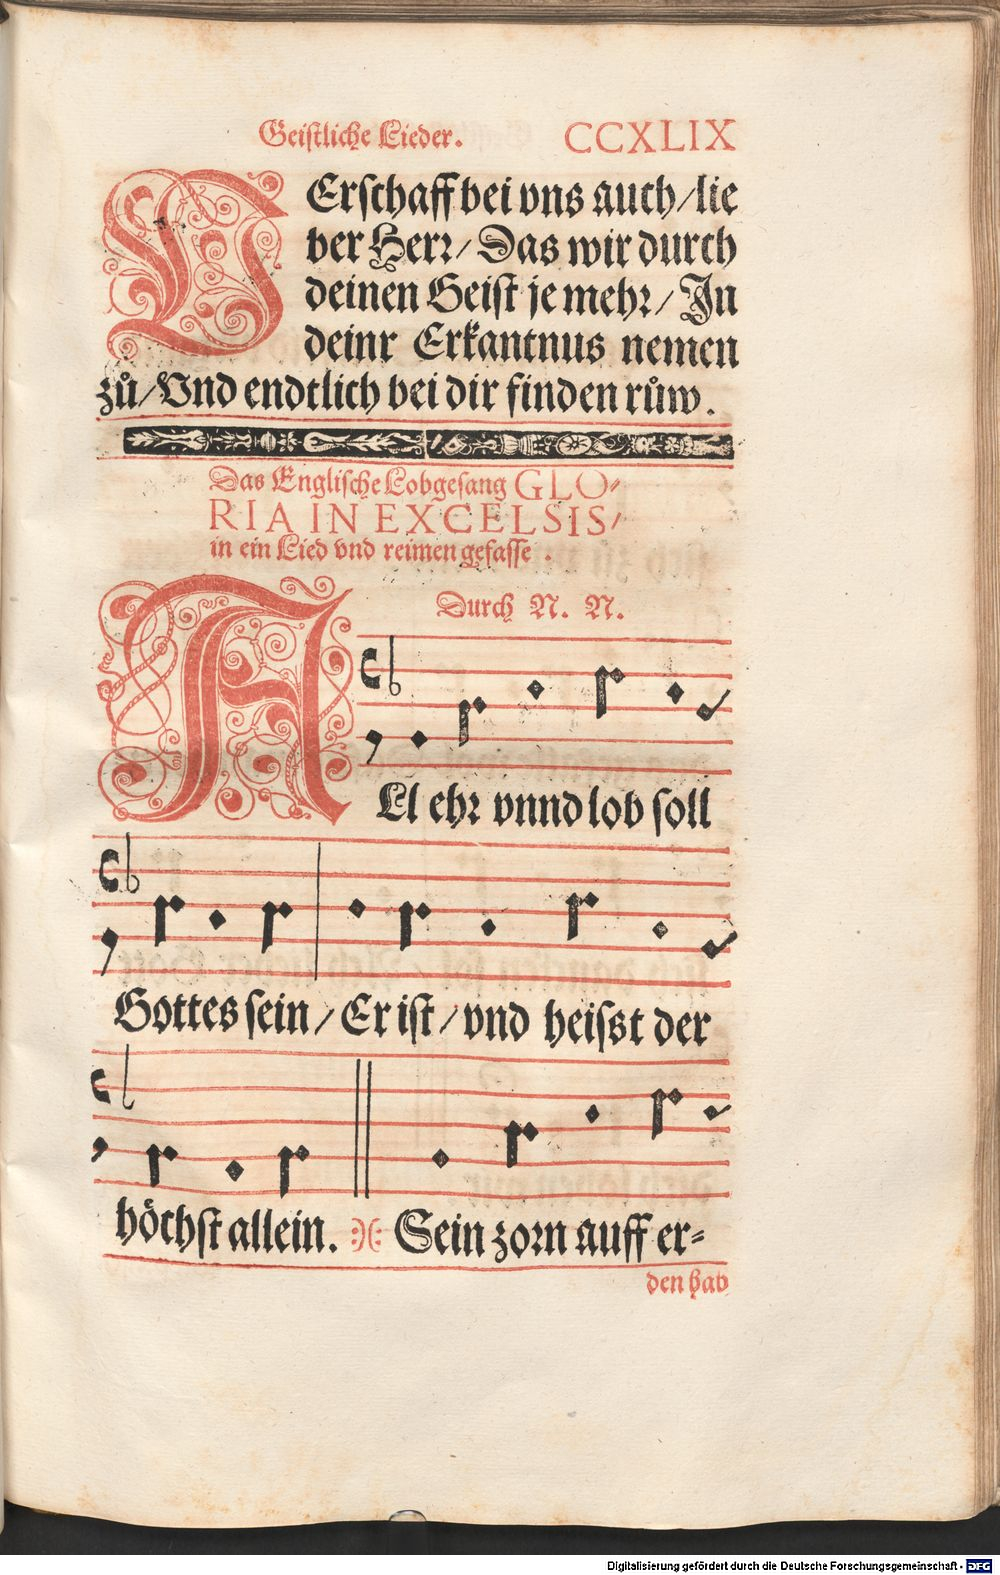 Geistliche Lieder. CCXLIX
VErschaff bei vns auch/lie
ber Herr/Das wir durch
deinen Geist je mehr/In
deinr Erkantnus nemen
zů/Vnd endtlich bei dir finden růw.
Das Englische Lobgesang GLO-
RIA IN EXCELSIS/
in ein Lied vnd reimen gefasse.
Durch N. N.
ALl ehr vnnd lob soll
Gottes sein/Er ist/vnd heisst der
höchst allein. Sein zorn auff er-
den hab
Digitalisierung gefördert durch die Deutsche Forschungsgemeinschaft - DFG